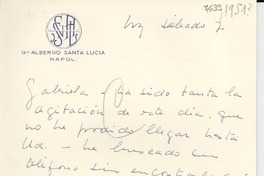 7635 1951?
Hoy sábado 7
Gd ALBERGO SANTA LUCIA
NAPOLI
Gabriela – ha sido tanta la
agitación de este día, que
no he podido llegar hasta
Ud. – he buscado un
teléfono sin